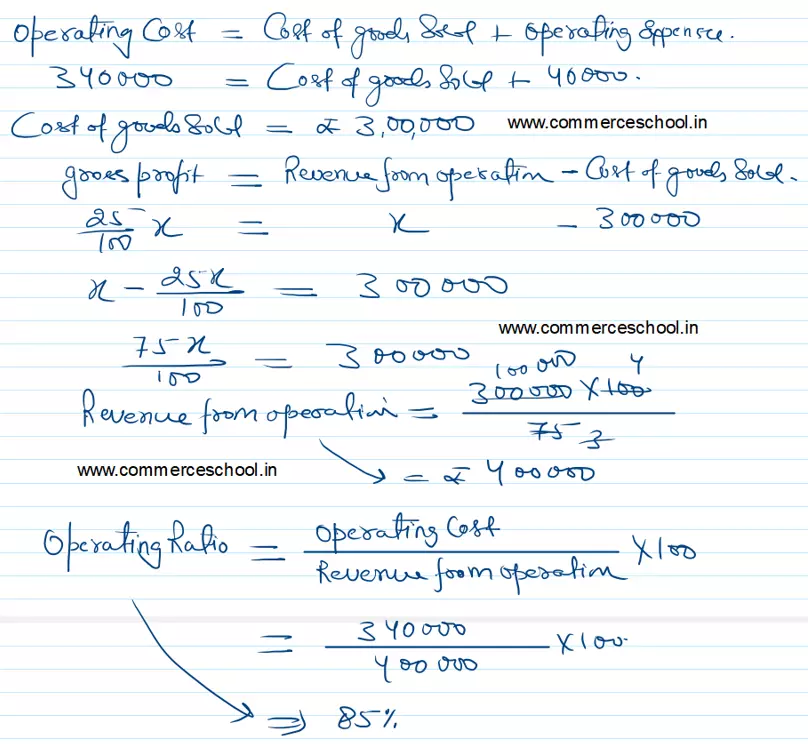 Operating Cost = Cost of goods Sold + Operating Expenses.
340000 = Cost of goods Sold + 40000.
Cost of goods Sold = ₹ 3,00,000 www.commerceschool.in
gross profit = Revenue from operation - Cost of goods Sold.
25/100 x = x - 300000
x - 25x/100 = 300000
www.commerceschool.in
75x/100 = 300000
100000 4
Revenue from operation = 300000 X 100 / 75 3
www.commerceschool.in
= ₹ 400000
Operating Ratio = Operating Cost / Revenue from operation X 100
= 340000 / 400000 X 100
⇒ 85%